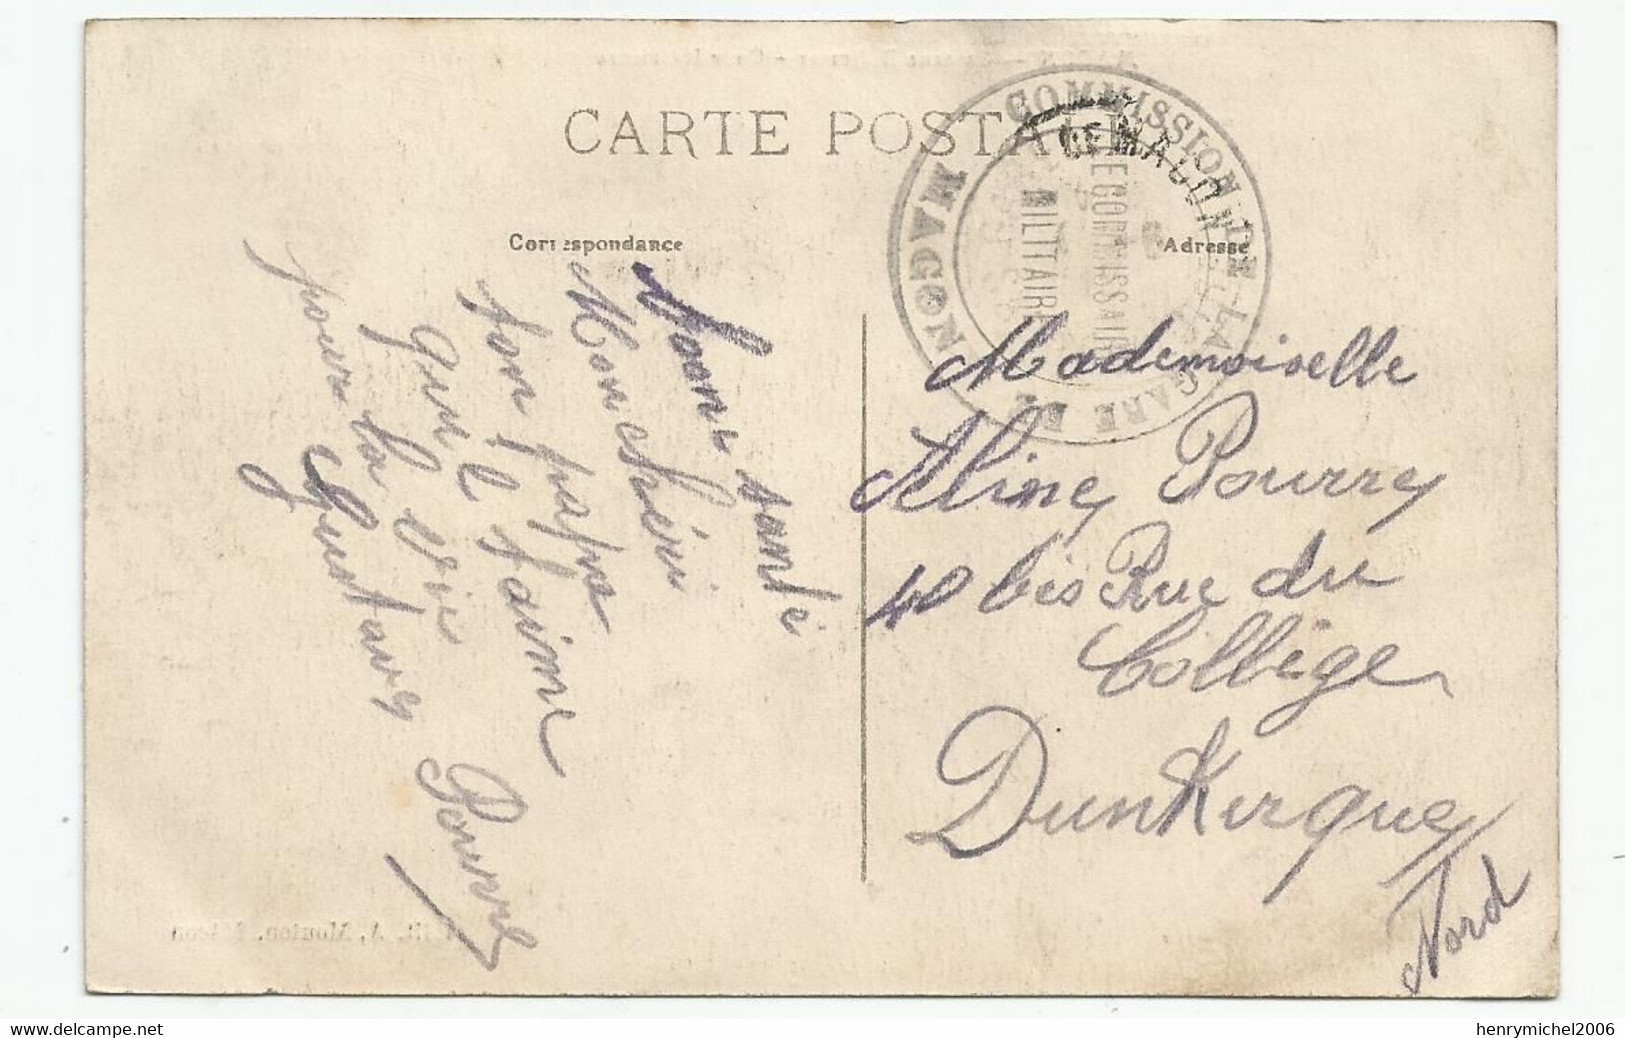 CARTE POSTALE
Correspondance
Adresse
COMMISSION DE LA GARE DE MACON
LE COMMISSAIRE
MILITAIRE
GARE DE MACON
Bonne santé
Mon chéri
ton papa
qui t'aime
pour la vie
Gustave
Pourrey
Mademoiselle
Aline Pourrey
40 bis Rue du
Collège
Dunkerque
Nord
Edit. A. Mouton, Mâcon
henrymichel2006